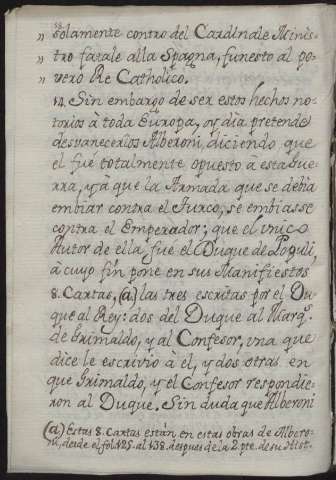 „ solamente contro del Cardinale Minis-
„ tro farale alla Spagna, funesto al po-
„ vero Re Catholico.
14. Sin embargo de ser estos hechos no-
torios à toda Europa, oy dia pretende
desvanecerlos Alberoni, diciendo que
el fue totalmente opuesto à esta que-
rra, y à que la Armada que se debia
embiar contra el Turco, se embiasse
contra el Emperador; que el unico
Autor de ella fué el Duque de Populi,
à cuyo fin pone en sus Manifiestos
8. Cartas, (a) las tres escritas por el Du-
que al Rey: dos del Duque al Marq.s
de Grimaldo, y al Confesor, una que
dice le escrivio à el, y dos otras en
que Grimaldo, y el Confesor respondie-
ron al Duque. Sin duda que Alberoni
(a) Estas 8. Cartas están en estas obras de Albero-
ni, desde el fol. 425. al 438. despues de la 2. pte. de su Hist.